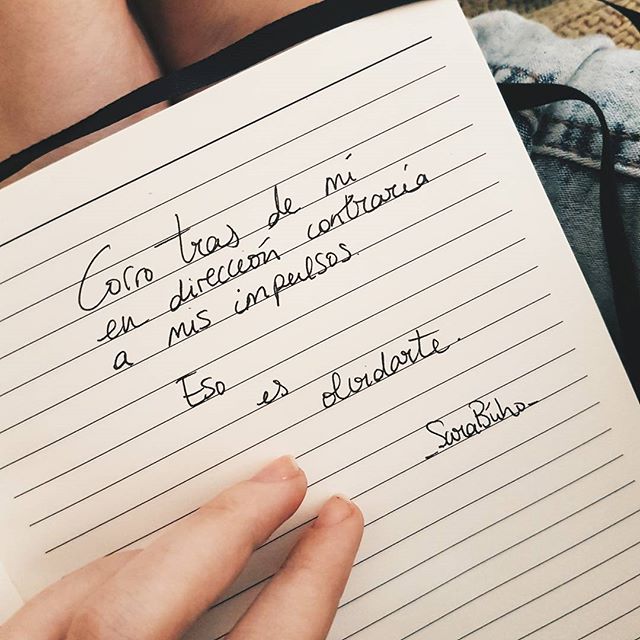 Corro tras de mi
en dirección contraria
a mis impulsos.
Eso es olvidarte.
_SaraBúho_